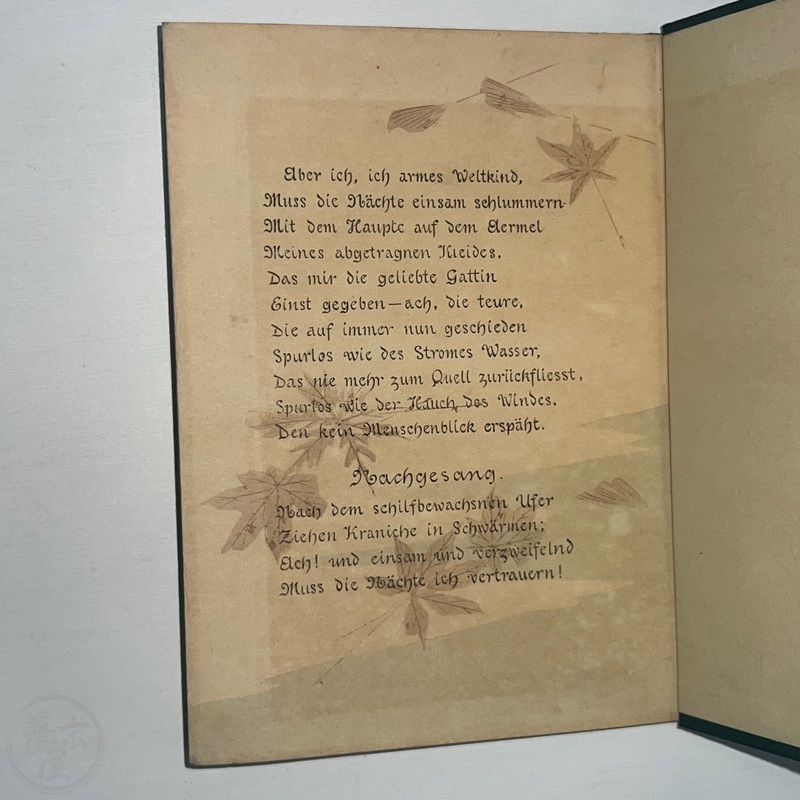 Aber ich, ich armes Weltkind,
Muss die Nächte einsam schlummern
Mit dem Haupte auf dem Aermel
Meines abgetragnen Kleides,
Das mir die geliebte Gattin
Einst gegeben—ach, die teure,
Die auf immer nun geschieden
Spurlos wie des Stromes Wasser,
Das nie mehr zum Quell zurückfliesst,
Spurlos wie der Hauch des Windes,
Den kein Menschenblick erspäht.
Nachgesang.
Nach dem schilfbewachsnen Ufer
Ziehen Kraniche in Schwärmen;
Ach! und einsam und verzweifelnd
Muss die Nächte ich vertrauern!